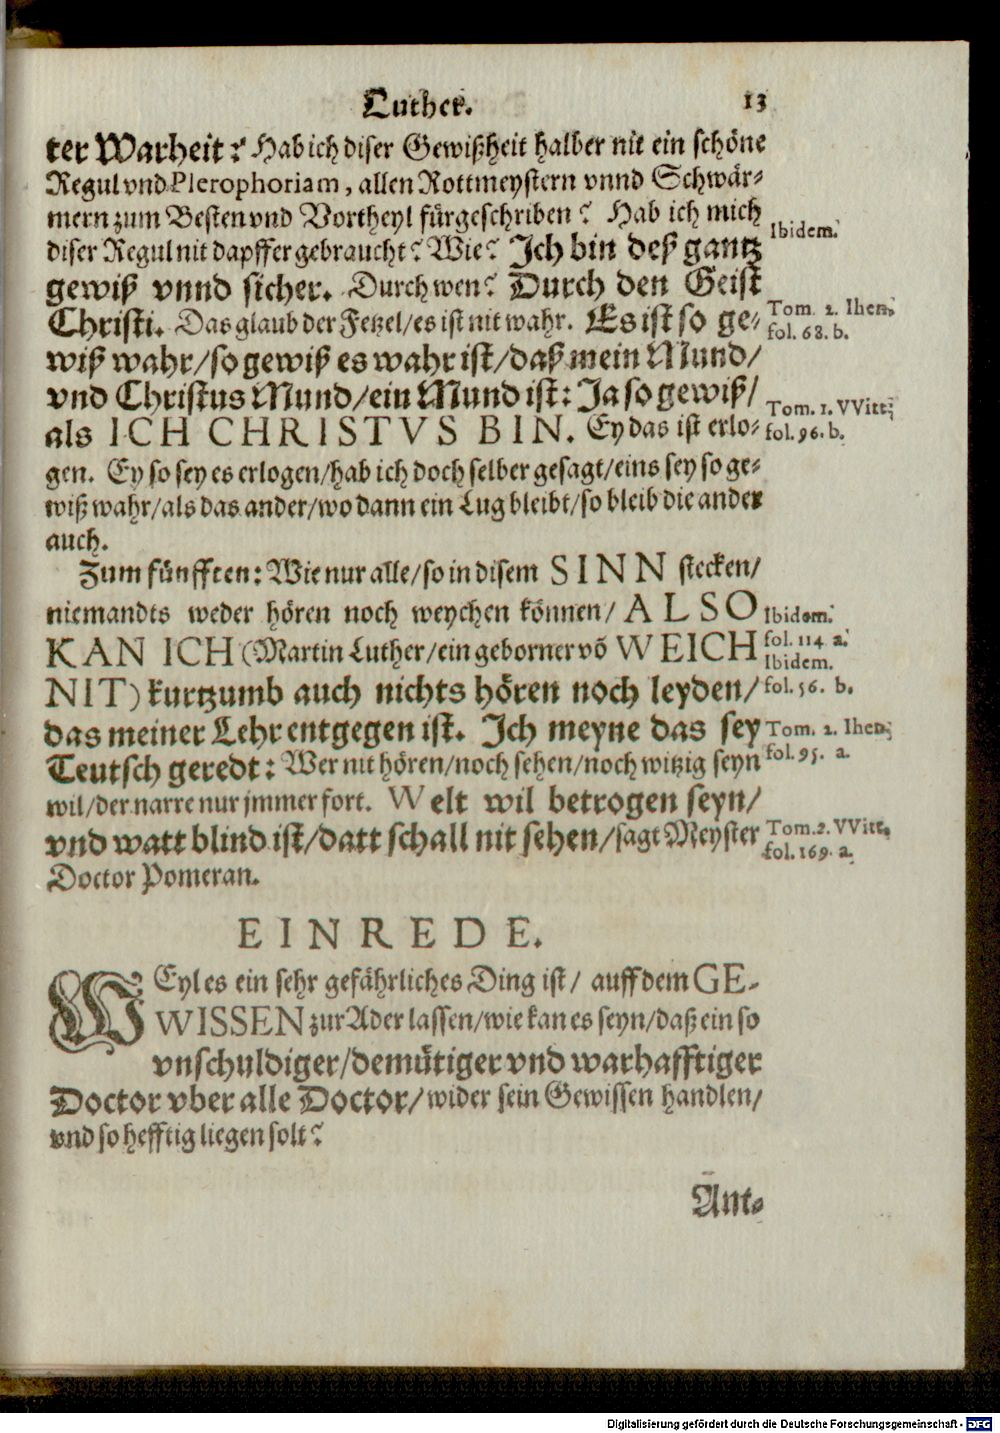 Luther. 13
ter Warheit? Hab ich diser Gewißheit halber nit ein schöne
Regul vnd Plerophoriam, allen Rottmeystern vnnd Schwär-
mern zum Besten vnd Vortheyl fürgeschriben? Hab ich mich
diser Regul nit dapffer gebraucht? Wie? Ich bin deß gantz
Ibidem.
gewiß vnnd sicher. Durch wen? Durch den Geist
Christi. Das glaub der Fetzel/es ist nit wahr. Es ist so ge-
Tom. 2. Ihen.
fol. 68. b.
wiß wahr/so gewiß es wahr ist/daß mein Mund/
vnd Christus Mund/ein Mund ist: Ja so gewiß/
Tom. 1. VVitt.
als ICH CHRISTVS BIN. Ey das ist erlo-
fol. 96. b.
gen. Ey so sey es erlogen/hab ich doch selber gesagt/eins sey so ge-
wiß wahr/als das ander/wo dann ein Lug bleibt/so bleib die ander
auch.
Zum fünfften: Wie nur alle/so in disem SINN stecken/
niemandts weder hören noch weychen können/ ALSO
Ibidem.
KAN ICH (Martin Luther/ein geborner võ WEICH
fol. 114 a.
Ibidem.
NIT) kurtzumb auch nichts hören noch leyden/
fol. 56. b.
das meiner Lehr entgegen ist. Ich meyne das sey
Tom. 2. Ihen.
Teutsch geredt: Wer nit hören/noch sehen/noch witzig seyn
fol. 95. a.
wil/der narre nur jmmer fort. Welt wil betrogen seyn/
vnd watt blind ist/datt schall nit sehen/sagt Meyster
Tom. 2. VVitt.
fol. 169. a.
Doctor Pomeran.
EINREDE.
WEyl es ein sehr gefährliches Ding ist/ auff dem GE-
WISSEN zur Ader lassen/wie kan es seyn/daß ein so
vnschuldiger/demütiger vnd warhafftiger
Doctor vber alle Doctor/wider sein Gewissen handlen/
vnd so hefftig liegen solt?
Ant-
Digitalisierung gefördert durch die Deutsche Forschungsgemeinschaft - DFG